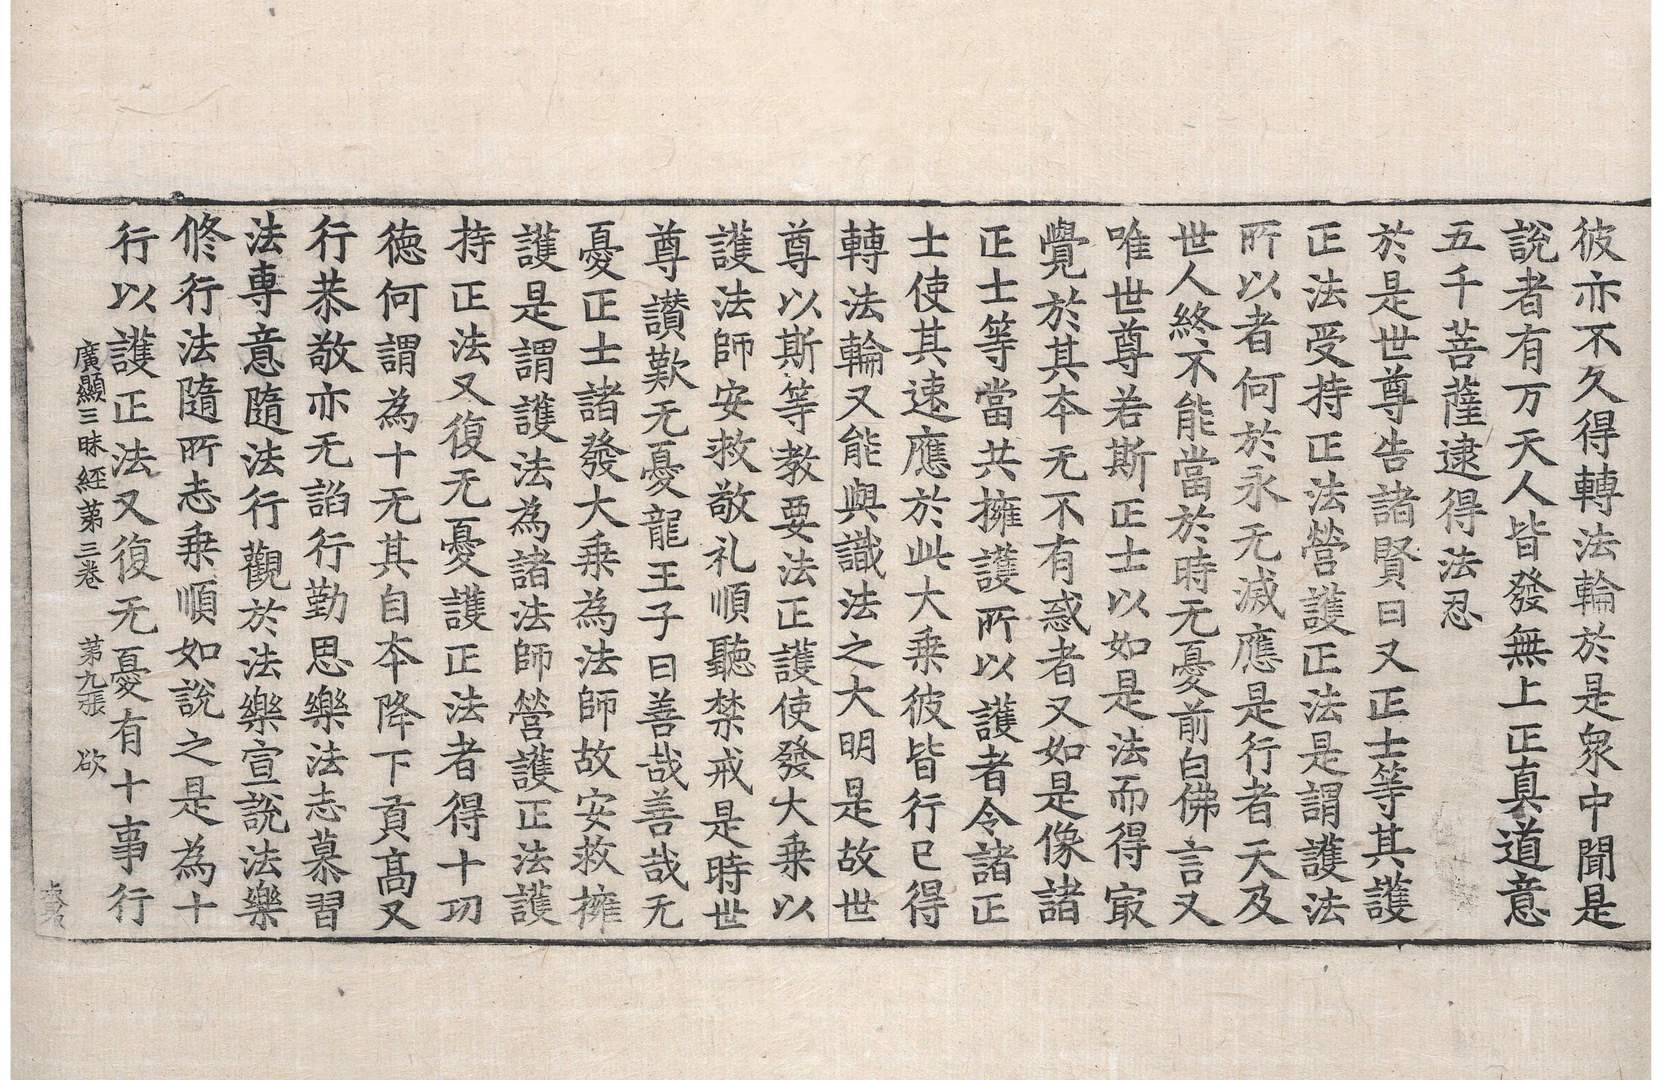 彼亦不久得轉法輪於是衆中聞是
說者有万天人皆發無上正真道意
五千菩薩逮得法忍
於是世尊告諸賢曰又正士等其護
正法受持正法營護正法是謂護法
所以者何於永无減應是行者天及
世人終不能當於時无憂前白佛言又
唯世尊若斯正士以如是法而得㝡
覺於其夲无不有惑者又如是像諸
正士等當共擁護所以護者令諸正
士使其速應於此大乗彼皆行已得
轉法輪又能與識法之大明是故世
尊以斯等教要法正護使發大乗以
護法師安救敬礼順聽禁戒是時世
尊讃歎无憂龍王子曰善哉善哉无
憂正士諸發大乗為法師故安救擁
護是謂護法為諸法師營護正法護
持正法又復无憂護正法者得十功
徳何謂為十无其自夲降下貢髙又
行恭敬亦无諂行勤思樂法志慕習
法專意隨法行觀於法樂宣說法樂
修行法隨所志乗順如說之是為十
行以護正法又復无憂有十事行
廣顯三昧経第三卷 第九張 欲